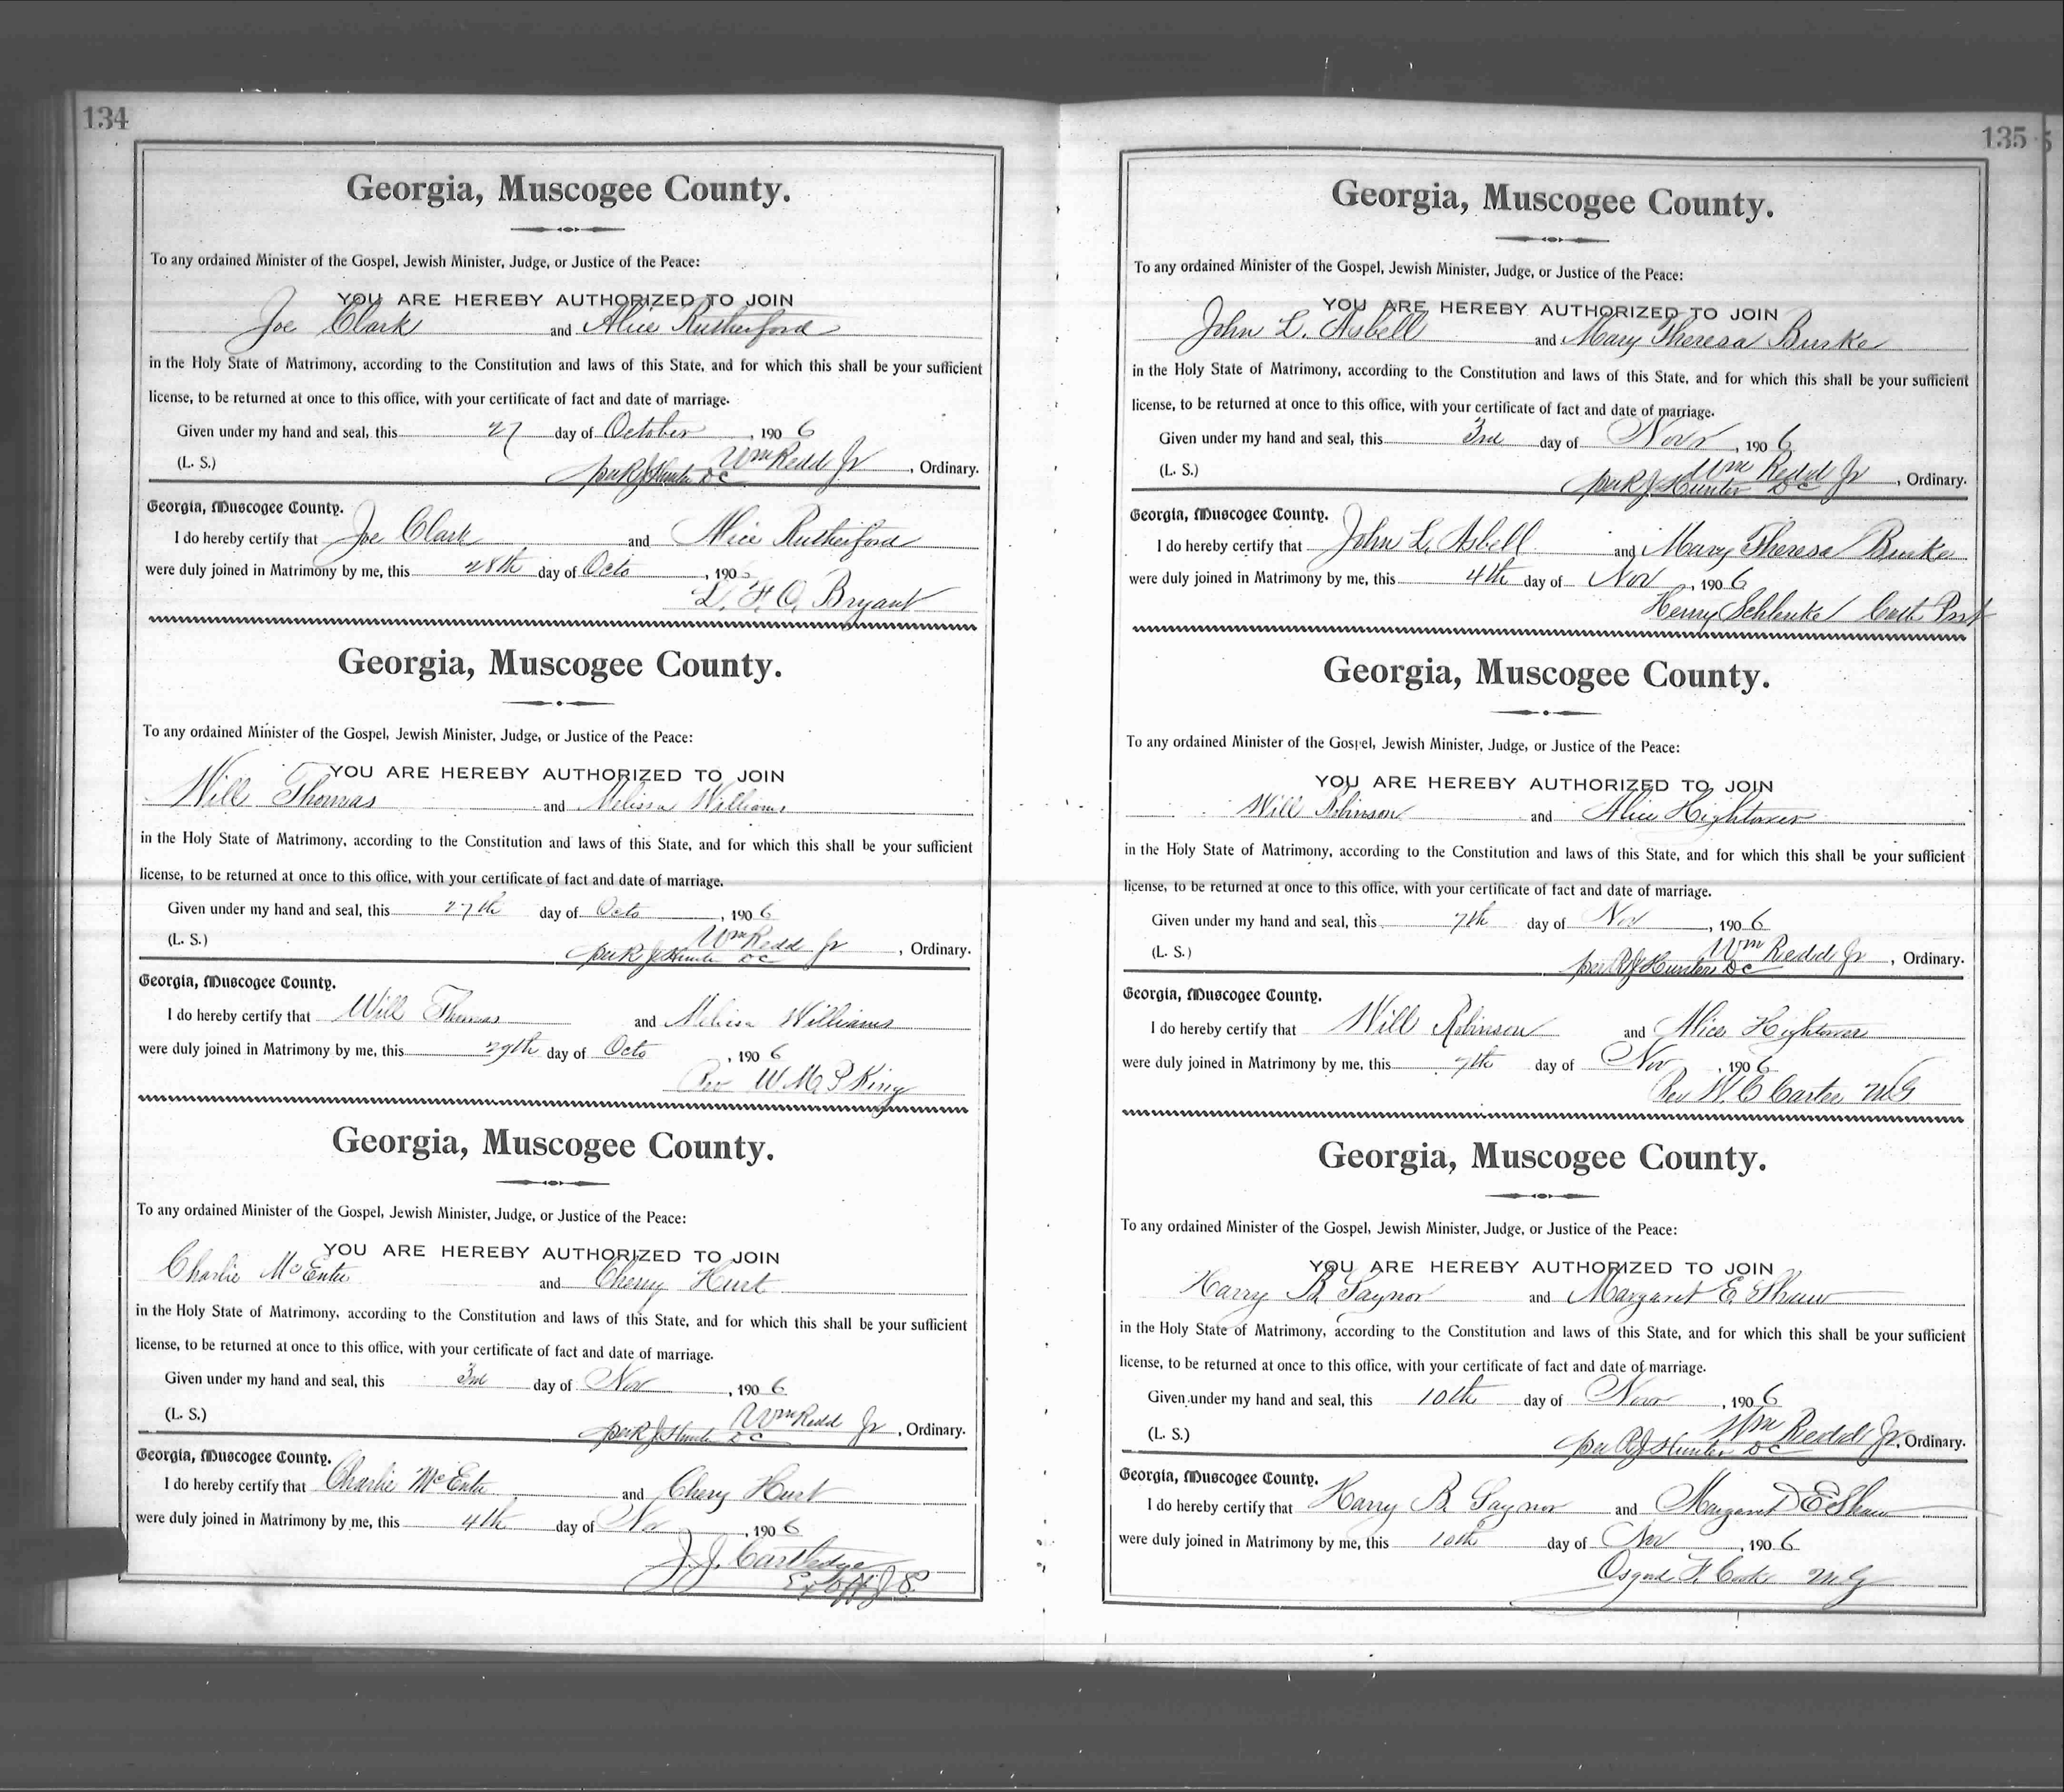 134
Georgia, Muscogee County.
To any ordained Minister of the Gospel, Jewish Minister, Judge, or Justice of the Peace:
YOU ARE HEREBY AUTHORIZED TO JOIN
Joe Clark and Alice Rutherford
in the Holy State of Matrimony, according to the Constitution and laws of this State, and for which this shall be your sufficient
license, to be returned at once to this office, with your certificate of fact and date of marriage.
Given under my hand and seal, this 27 day of October, 1906
(L. S.) Wm Redd Jr, Ordinary.
per R J Hunter DC
Georgia, Muscogee County.
I do hereby certify that Joe Clark and Alice Rutherford
were duly joined in Matrimony by me, this 28th day of Octo, 1906
L. F. O. Bryant
Georgia, Muscogee County.
To any ordained Minister of the Gospel, Jewish Minister, Judge, or Justice of the Peace:
YOU ARE HEREBY AUTHORIZED TO JOIN
Will Thomas and Melissa Williams
in the Holy State of Matrimony, according to the Constitution and laws of this State, and for which this shall be your sufficient
license, to be returned at once to this office, with your certificate of fact and date of marriage.
Given under my hand and seal, this 27th day of Octo, 1906
(L. S.) Wm Redd Jr, Ordinary.
per R J Hunter DC
Georgia, Muscogee County.
I do hereby certify that Will Thomas and Melissa Williams
were duly joined in Matrimony by me, this 29th day of Octo, 1906
Rev W. M. P King
Georgia, Muscogee County.
To any ordained Minister of the Gospel, Jewish Minister, Judge, or Justice of the Peace:
YOU ARE HEREBY AUTHORIZED TO JOIN
Charlie McEntee and Cherry Hurt
in the Holy State of Matrimony, according to the Constitution and laws of this State, and for which this shall be your sufficient
license, to be returned at once to this office, with your certificate of fact and date of marriage.
Given under my hand and seal, this 3rd day of Nov, 1906
(L. S.) Wm Redd Jr, Ordinary.
per R J Hunter DC
Georgia, Muscogee County.
I do hereby certify that Charlie McEntee and Chery Hurt
were duly joined in Matrimony by me, this 4th day of Nov, 1906
J. J. Cartledge
Ex off J P.
135
Georgia, Muscogee County.
To any ordained Minister of the Gospel, Jewish Minister, Judge, or Justice of the Peace:
YOU ARE HEREBY AUTHORIZED TO JOIN
John L. Asbell and Mary Theresa Burke
in the Holy State of Matrimony, according to the Constitution and laws of this State, and for which this shall be your sufficient
license, to be returned at once to this office, with your certificate of fact and date of marriage.
Given under my hand and seal, this 3rd day of Novr, 1906
(L. S.) Wm Redd Jr, Ordinary.
per R J Hunter DC
Georgia, Muscogee County.
I do hereby certify that John L. Asbell and Mary Theresa Burke
were duly joined in Matrimony by me, this 4th day of Nov, 1906
Henry Schlenke Cath Prst
Georgia, Muscogee County.
To any ordained Minister of the Gospel, Jewish Minister, Judge, or Justice of the Peace:
YOU ARE HEREBY AUTHORIZED TO JOIN
Will Robinson and Alice Hightower
in the Holy State of Matrimony, according to the Constitution and laws of this State, and for which this shall be your sufficient
license, to be returned at once to this office, with your certificate of fact and date of marriage.
Given under my hand and seal, this 7th day of Nov, 1906
(L. S.) Wm Redd Jr, Ordinary.
per R J Hunter DC
Georgia, Muscogee County.
I do hereby certify that Will Robinson and Alice Hightower
were duly joined in Matrimony by me, this 7th day of Nov, 1906
Rev W. C Carter MG
Georgia, Muscogee County.
To any ordained Minister of the Gospel, Jewish Minister, Judge, or Justice of the Peace:
YOU ARE HEREBY AUTHORIZED TO JOIN
Harry B. Gaynor and Margaret E. Shaw
in the Holy State of Matrimony, according to the Constitution and laws of this State, and for which this shall be your sufficient
license, to be returned at once to this office, with your certificate of fact and date of marriage.
Given under my hand and seal, this 10th day of Novr, 1906
(L. S.) Wm Redd Jr, Ordinary.
per R J Hunter DC
Georgia, Muscogee County.
I do hereby certify that Harry B. Gaynor and Margaret E Shaw
were duly joined in Matrimony by me, this 10th day of Nov, 1906
Osgood F. Cook MG